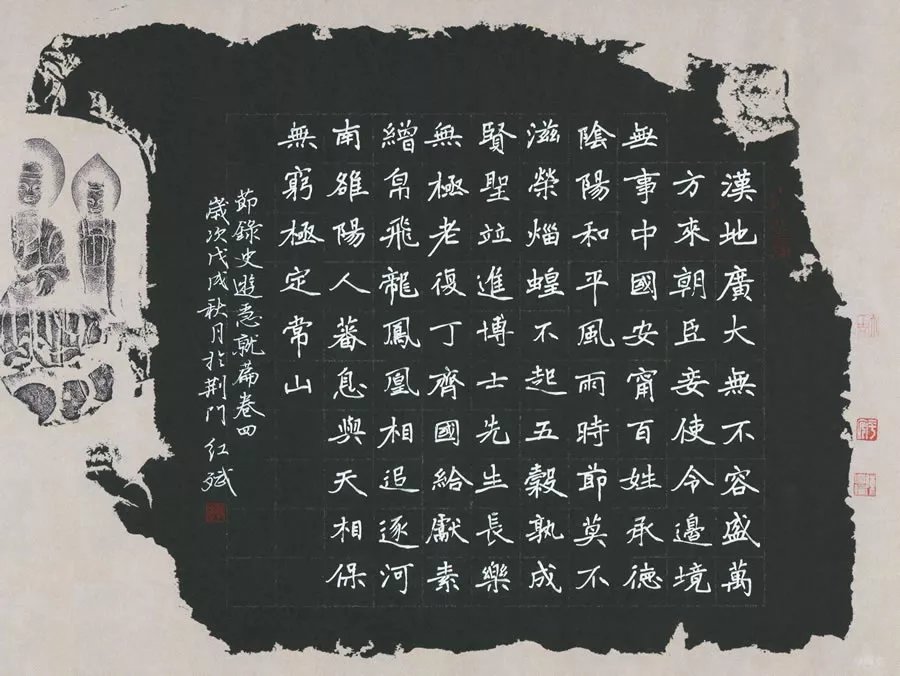 漢地廣大無不容盛萬
方來朝臣妾使令邊境
無事中國安甯百姓承德
陰陽和平風雨時節莫不
滋榮蝗不起五穀孰成
賢聖竝進博士先生長樂
無極老復丁齊國給獻素
繒帛飛龍鳳凰相追逐河
南雒陽人蕃息與天相保
無窮極定常山
節錄史遊急就篇卷四
歲次戊戌秋月於荆門 紅斌